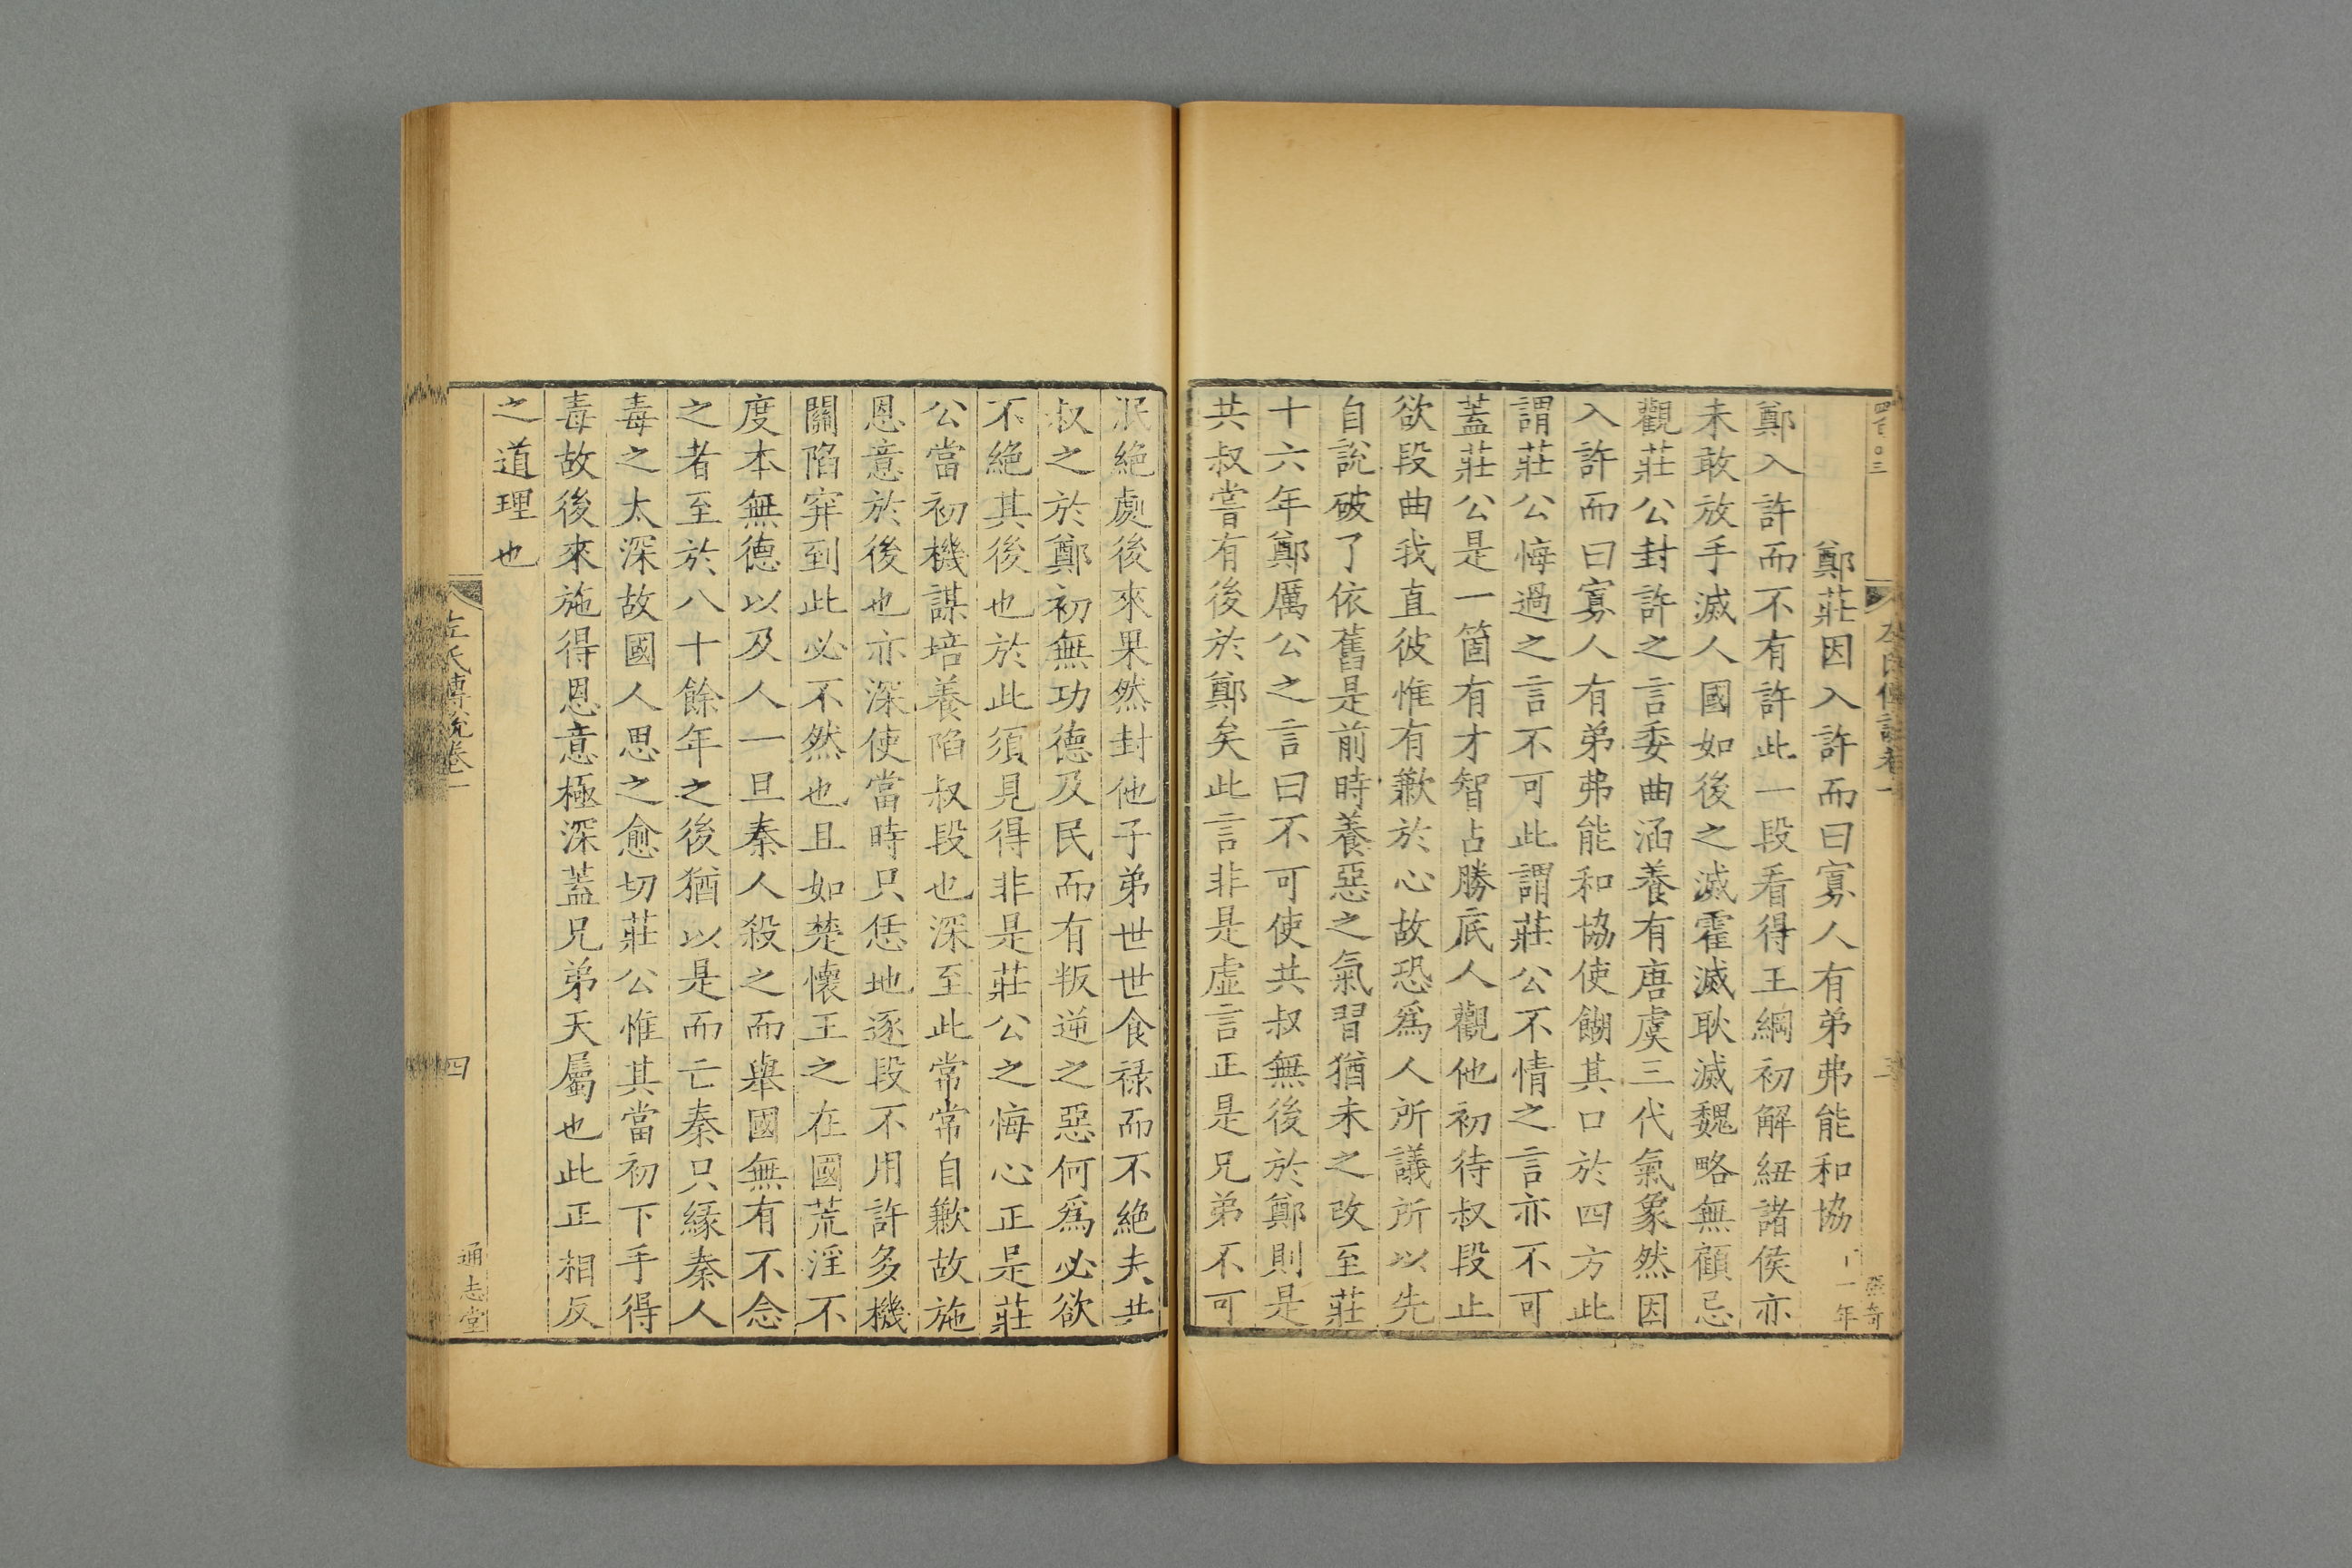 四百〇三
左氏傳說卷一
三
鄭莊因入許而曰寡人有弟弗能和協 十一年
鄭入許而不有許此一段看得王綱初解紐諸侯亦
未敢放手滅人國如後之滅霍滅耿滅魏略無顧忌
觀莊公封許之言委曲涵養有唐虞三代氣象然因
入許而曰寡人有弟弗能和協使餬其口於四方此
謂莊公悔過之言不可此謂莊公不情之言亦不可
蓋莊公是一箇有才智占勝底人觀他初待叔段止
欲段曲我直彼惟有歉於心故恐爲人所議所以先
自說破了依舊是前時養惡之氣習猶未之改至莊
十六年鄭厲公之言曰不可使共叔無後於鄭則是
共叔嘗有後於鄭矣此言非是虛言正是兄弟不可
泯絕處後來果然封他子弟世世食祿而不絕夫共
叔之於鄭初無功德及民而有叛逆之惡何爲必欲
不絕其後也於此須見得非是莊公之悔心正是莊
公當初機謀培養陷叔段也深至此常常自歉故施
恩意於後也亦深使當時只恁地逐段不用許多機
關陷穽到此必不然也且如楚懷王之在國荒淫不
度本無德以及人一旦秦人殺之而舉國無有不念
之者至於八十餘年之後猶以是而亡秦只緣秦人
毒之太深故國人思之愈切莊公惟其當初下手得
毒故後來施得恩意極深蓋兄弟天屬也此正相反
之道理也
左氏傳說卷一
四
通志堂